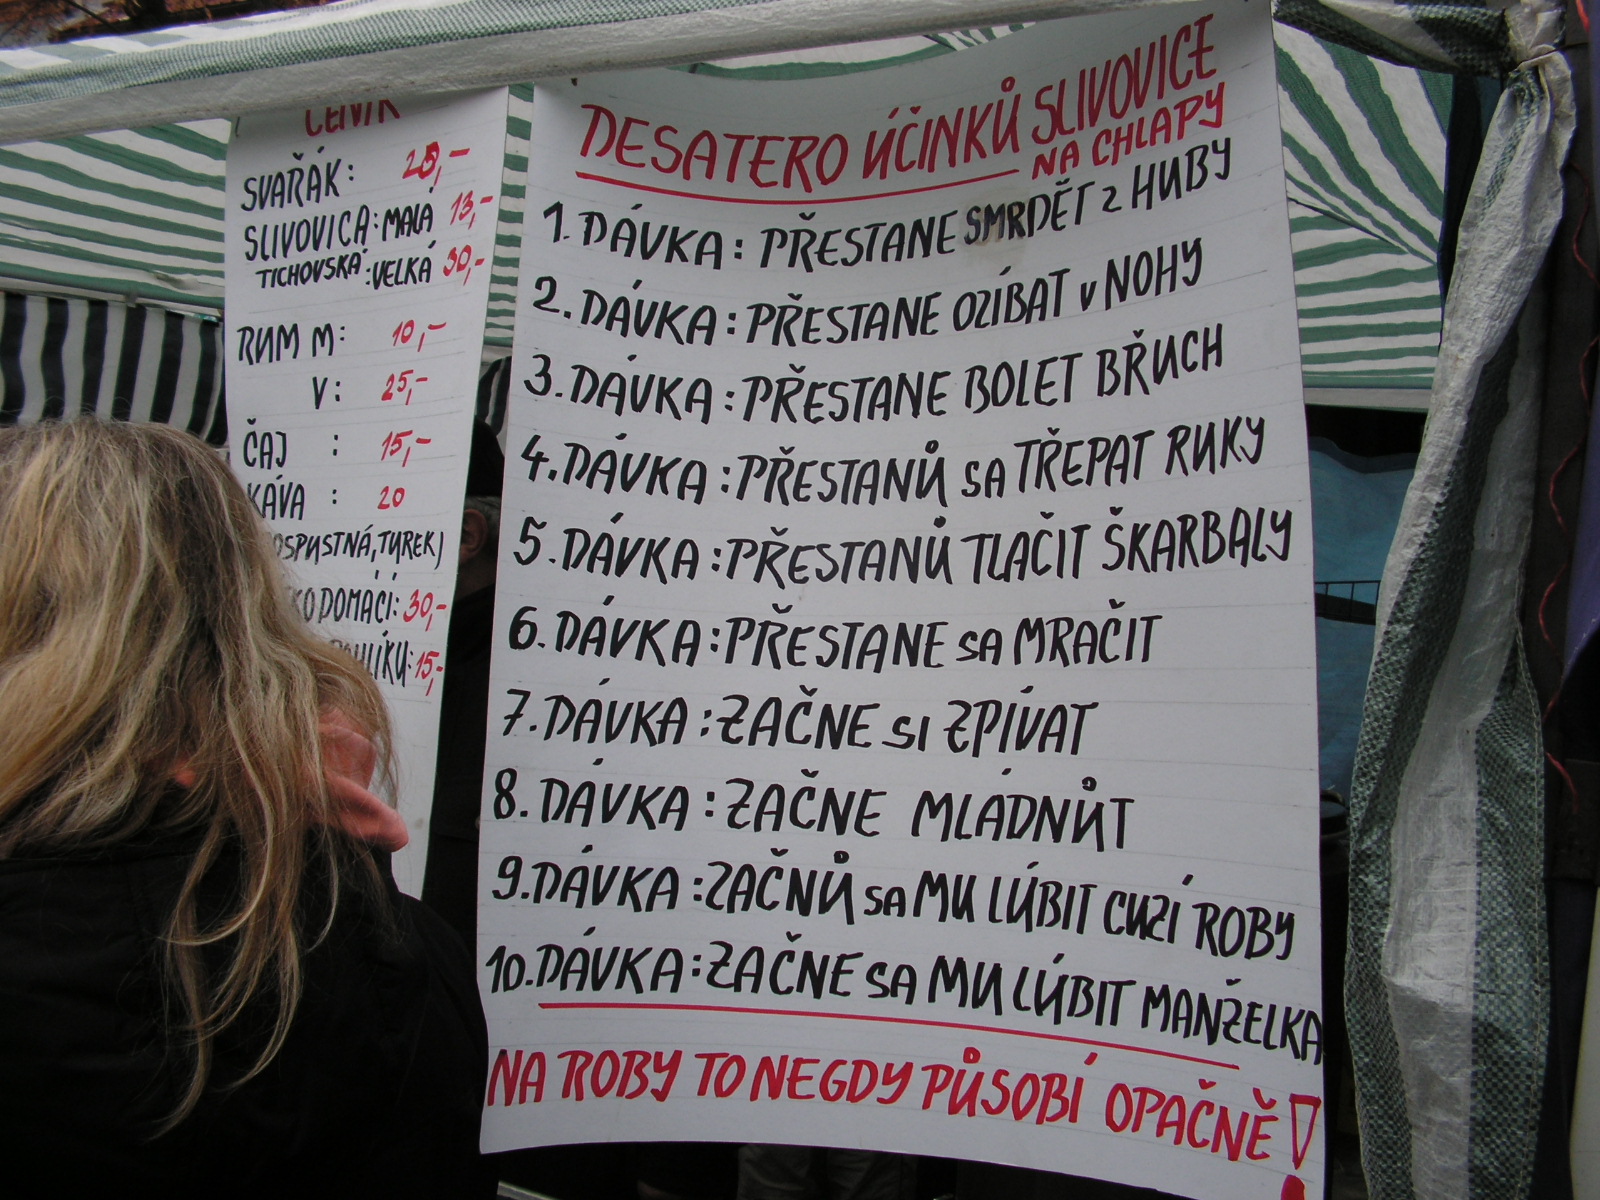 CENÍK
SVAŘÁK: 25,-
SLIVOVICA: MALÁ 13,-
TICHOVSKÁ: VELKÁ 30,-
RUM M: 10,-
V: 25,-
ČAJ : 15,-
KÁVA : 20
TUREK)
DOMÁCÍ: 30,-
15,-
DESATERO ÚČINKŮ SLIVOVICE
NA CHLAPY
1. DÁVKA: PŘESTANE SMRDĚT z HUBY
2. DÁVKA: PŘESTANE OZÍBAT v NOHY
3. DÁVKA: PŘESTANE BOLET BŘUCH
4. DÁVKA: PŘESTANŮ sa TŘEPAT RUKY
5. DÁVKA: PŘESTANŮ TLAČIT ŠKARBALY
6. DÁVKA: PŘESTANE sa MRAČIT
7. DÁVKA: ZAČNE si ZPÍVAT
8. DÁVKA: ZAČNE MLÁDNŮT
9. DÁVKA: ZAČNŮ sa MU LÚBIT CUZÍ ROBY
10. DÁVKA: ZAČNE sa MU LÚBIT MANŽELKA
NA ROBY TO NEGDY PŮSOBÍ OPAČNĚ!